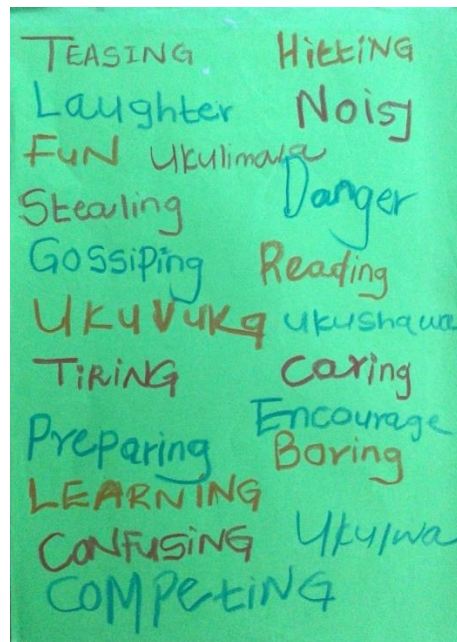 TEASING HittiNG
Laughter Noisy
FuN Ukulimala
Stealing Danger
GOSSiPing Reading
UKUVUKa ukushawa
TiRiNG Caring
Encourage
Preparing Boring
LEARNING
CONFUSING Ukulwa
COMPetiNG